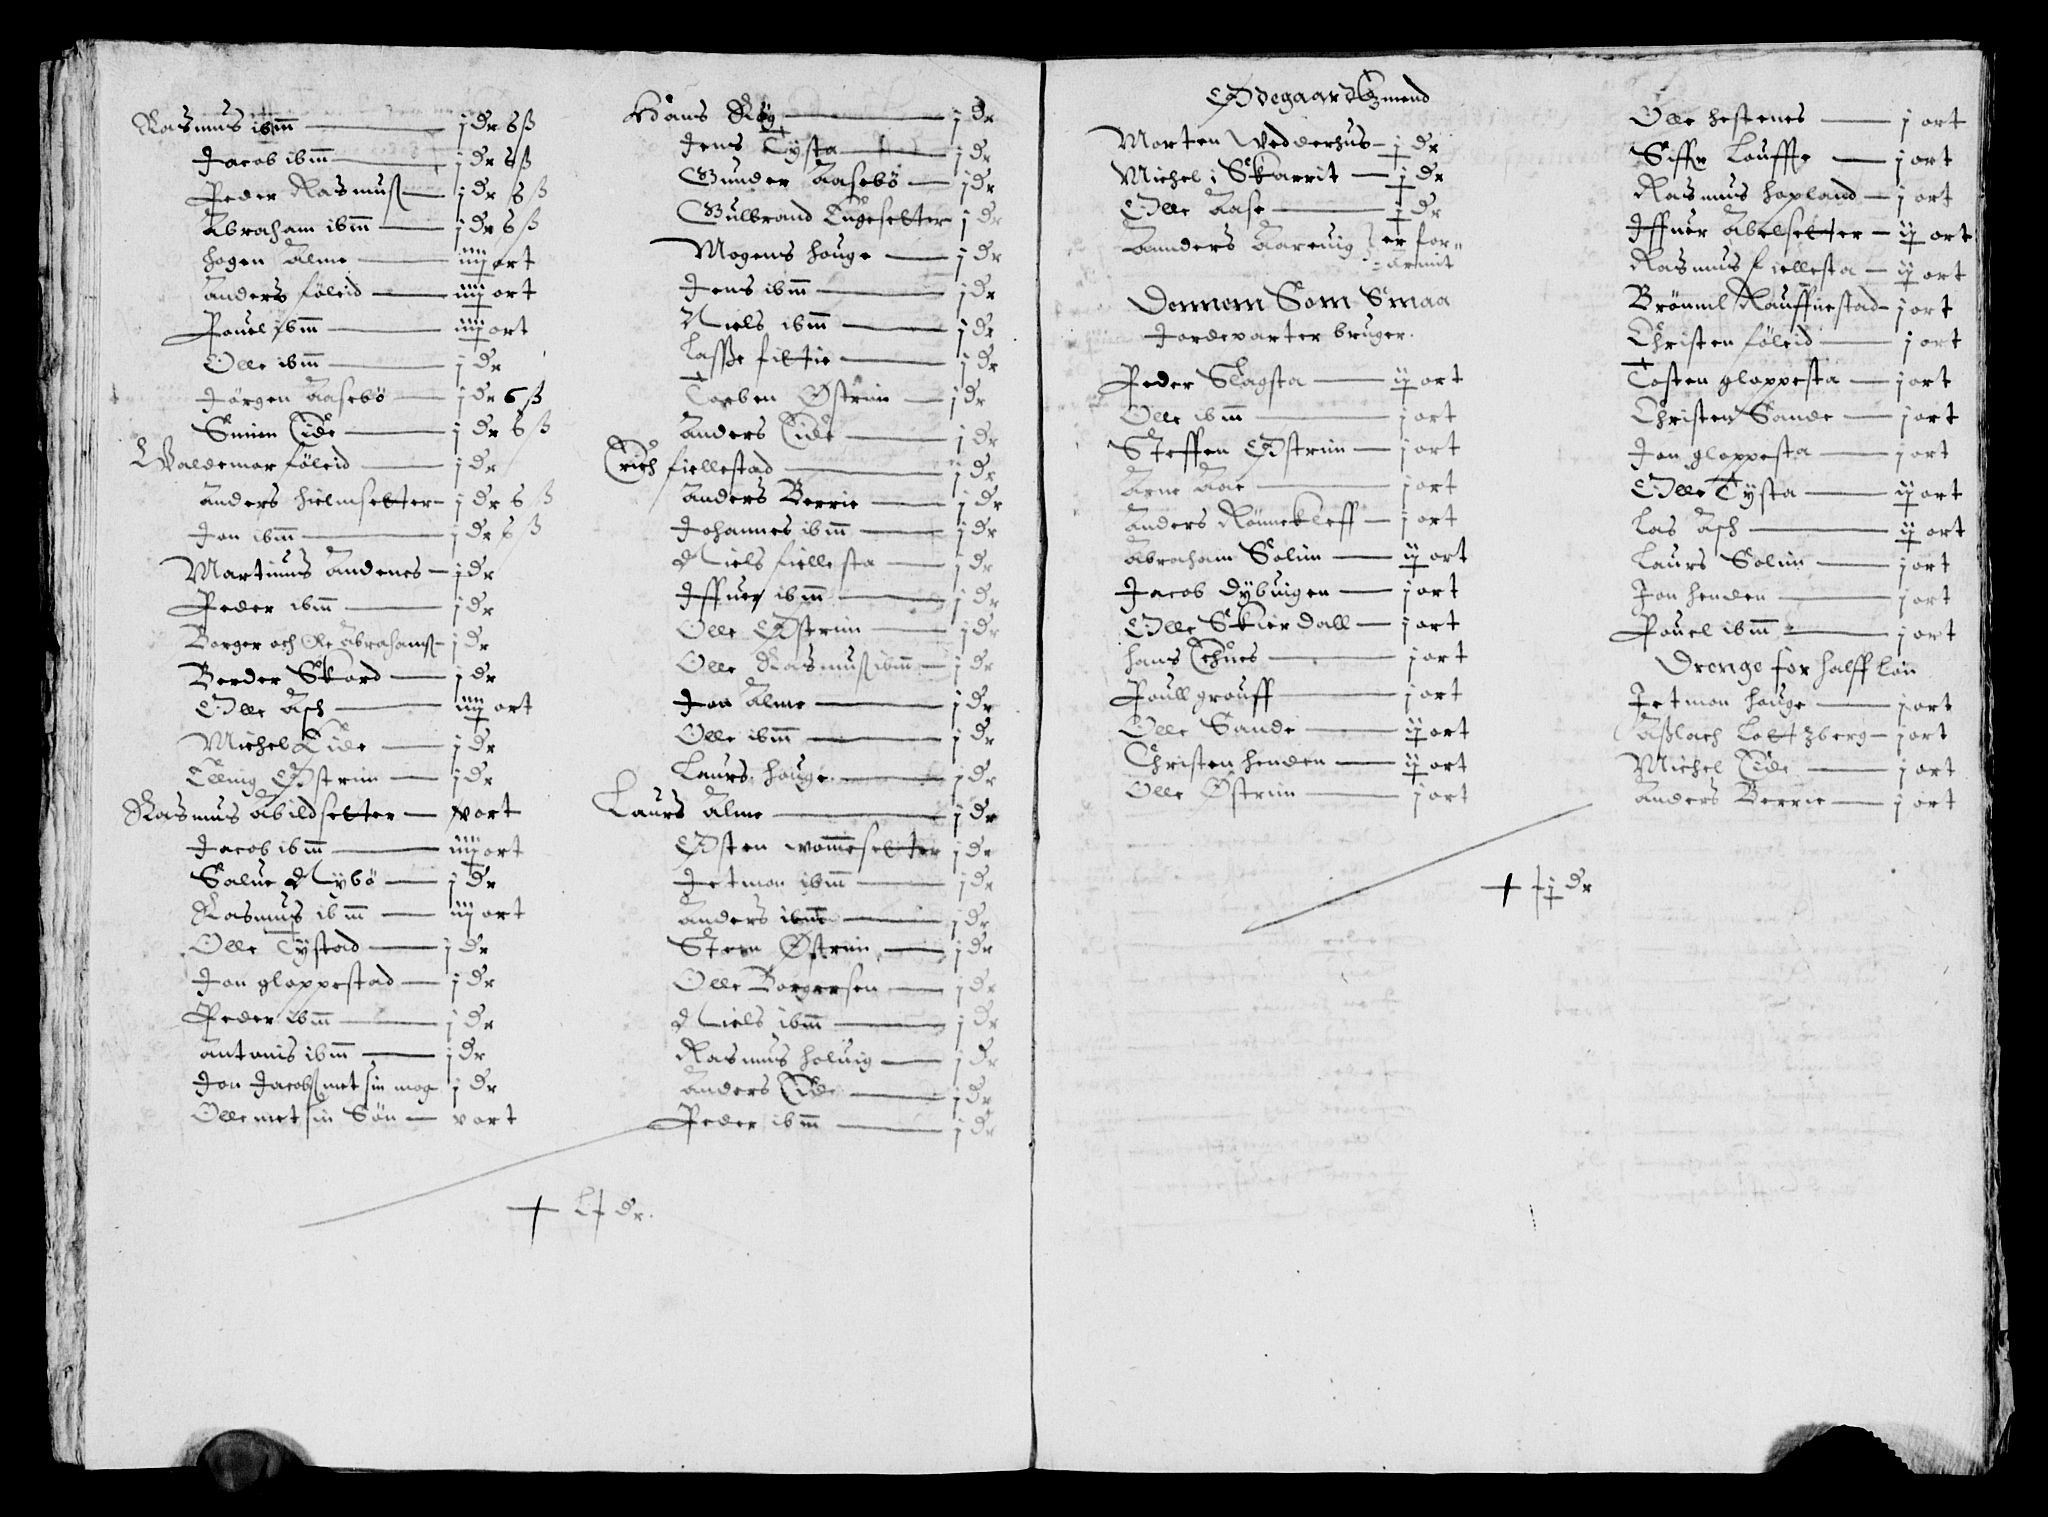 Rasmus ibm — j dr 6 ß
Jacob ibm — j dr 6 ß
Peder Rasmusß — j dr 6 ß
Abraham ibm — j dr 6 ß
Hogen Alme — iiij ort
Anders Föleid — iiij ort
Pouel ibm — iiij ort
Olle ibm — j dr
Jörgen Aasebö — j dr 6 ß
Simen Eide — j dr 6 ß
Valdemar Föleid — j dr
Anders Hielmsetter — j dr 6 ß
Jon ibm — j dr 6 ß
Martinus Andenes — j dr
Peder ibm — j dr
Borger och Ole Abrahamß — j dr
Berder Skord — j dr
Olle Ask — iiij ort
Michel Eide — j dr
Elling Østrim — j dr
Rasmus Abildsetter — v ort
Jacob ibm — iiij ort
Salue Nybö — j dr
Rasmus ibm — iiij ort
Olle Tystad — j dr
Jon gloppestad — j dr
Peder ibm — j dr
Antonis ibm — j dr
Jon Jacobß met sin mog j dr
Olle met sin Sön — v ort
Hans Røg — j dr
Jens Tysta — j dr
Gunder Aasebö — j dr
Gulbrand Engesetter j dr
Mogens Houge — j dr
Jens ibm — j dr
Niels ibm — j dr
Lasse Fittie — j dr
Torben Østrim — j dr
Anders Eide — j dr
Erich Fiellestad — j dr
Anders Berrie — j dr
Johannes ibm — j dr
Niels Fiellesta — j dr
Iffuer ibm — j dr
Olle Østrim — j dr
Olle Rasmusß ibm — j dr
Jon Alme — j dr
Olle ibm — j dr
Laurs Houge — j dr
Laurs Alme — j dr
Østen vommesetter j dr
Jetmon ibm — j dr
Anders ibm — j dr
Steen Østrim — j dr
Olle Borgersen — j dr
Niels ibm — j dr
Rasmus Holuig — j dr
Anders Eide — j dr
Peder ibm — j dr
dr.
Ødegaardtzmend
Morten Vedderhus — j dr
Michel i Skarrit — j dr
Olle Aase — j dr
Aanders Aareuig er for-
armit
Dennem Som Smaa
Jordeparter bruger.
Peder Slagsta — ij ort
Olle ibm — j ort
Steffen Østrim — j ort
Arne Aae — j ort
Anders Rönnekleff — j ort
Abraham Solim — ij ort
Jacob Dybuigen — j ort
Olle Skierdall — j ort
Hans — j ort
Poull grouff — j ort
Olle Sande — ij ort
Christen Henden — ij ort
Olle Østrim — j ort
Olle Hestenes — j ort
Siffr Louffte — j ort
Rasmus Hopland — j ort
Iffuer Abelsetter — ij ort
Rasmus Fiellesta — ij ort
Brönnil Rauffnestad — j ort
Christen Föleid — j ort
Tosten gloppesta — j ort
Christen Sande — j ort
Jon gloppesta — j ort
Olle Tysta — ij ort
Las Ask — ij ort
Laurs Solim — j ort
Jon Henden — j ort
Pouel ibm — j ort
Drenge for halff lön
Jetmon Houge — j ort
Aßlach Lottzberg — j ort
Michel Eide — j ort
Anders Berrie — j ort
dr